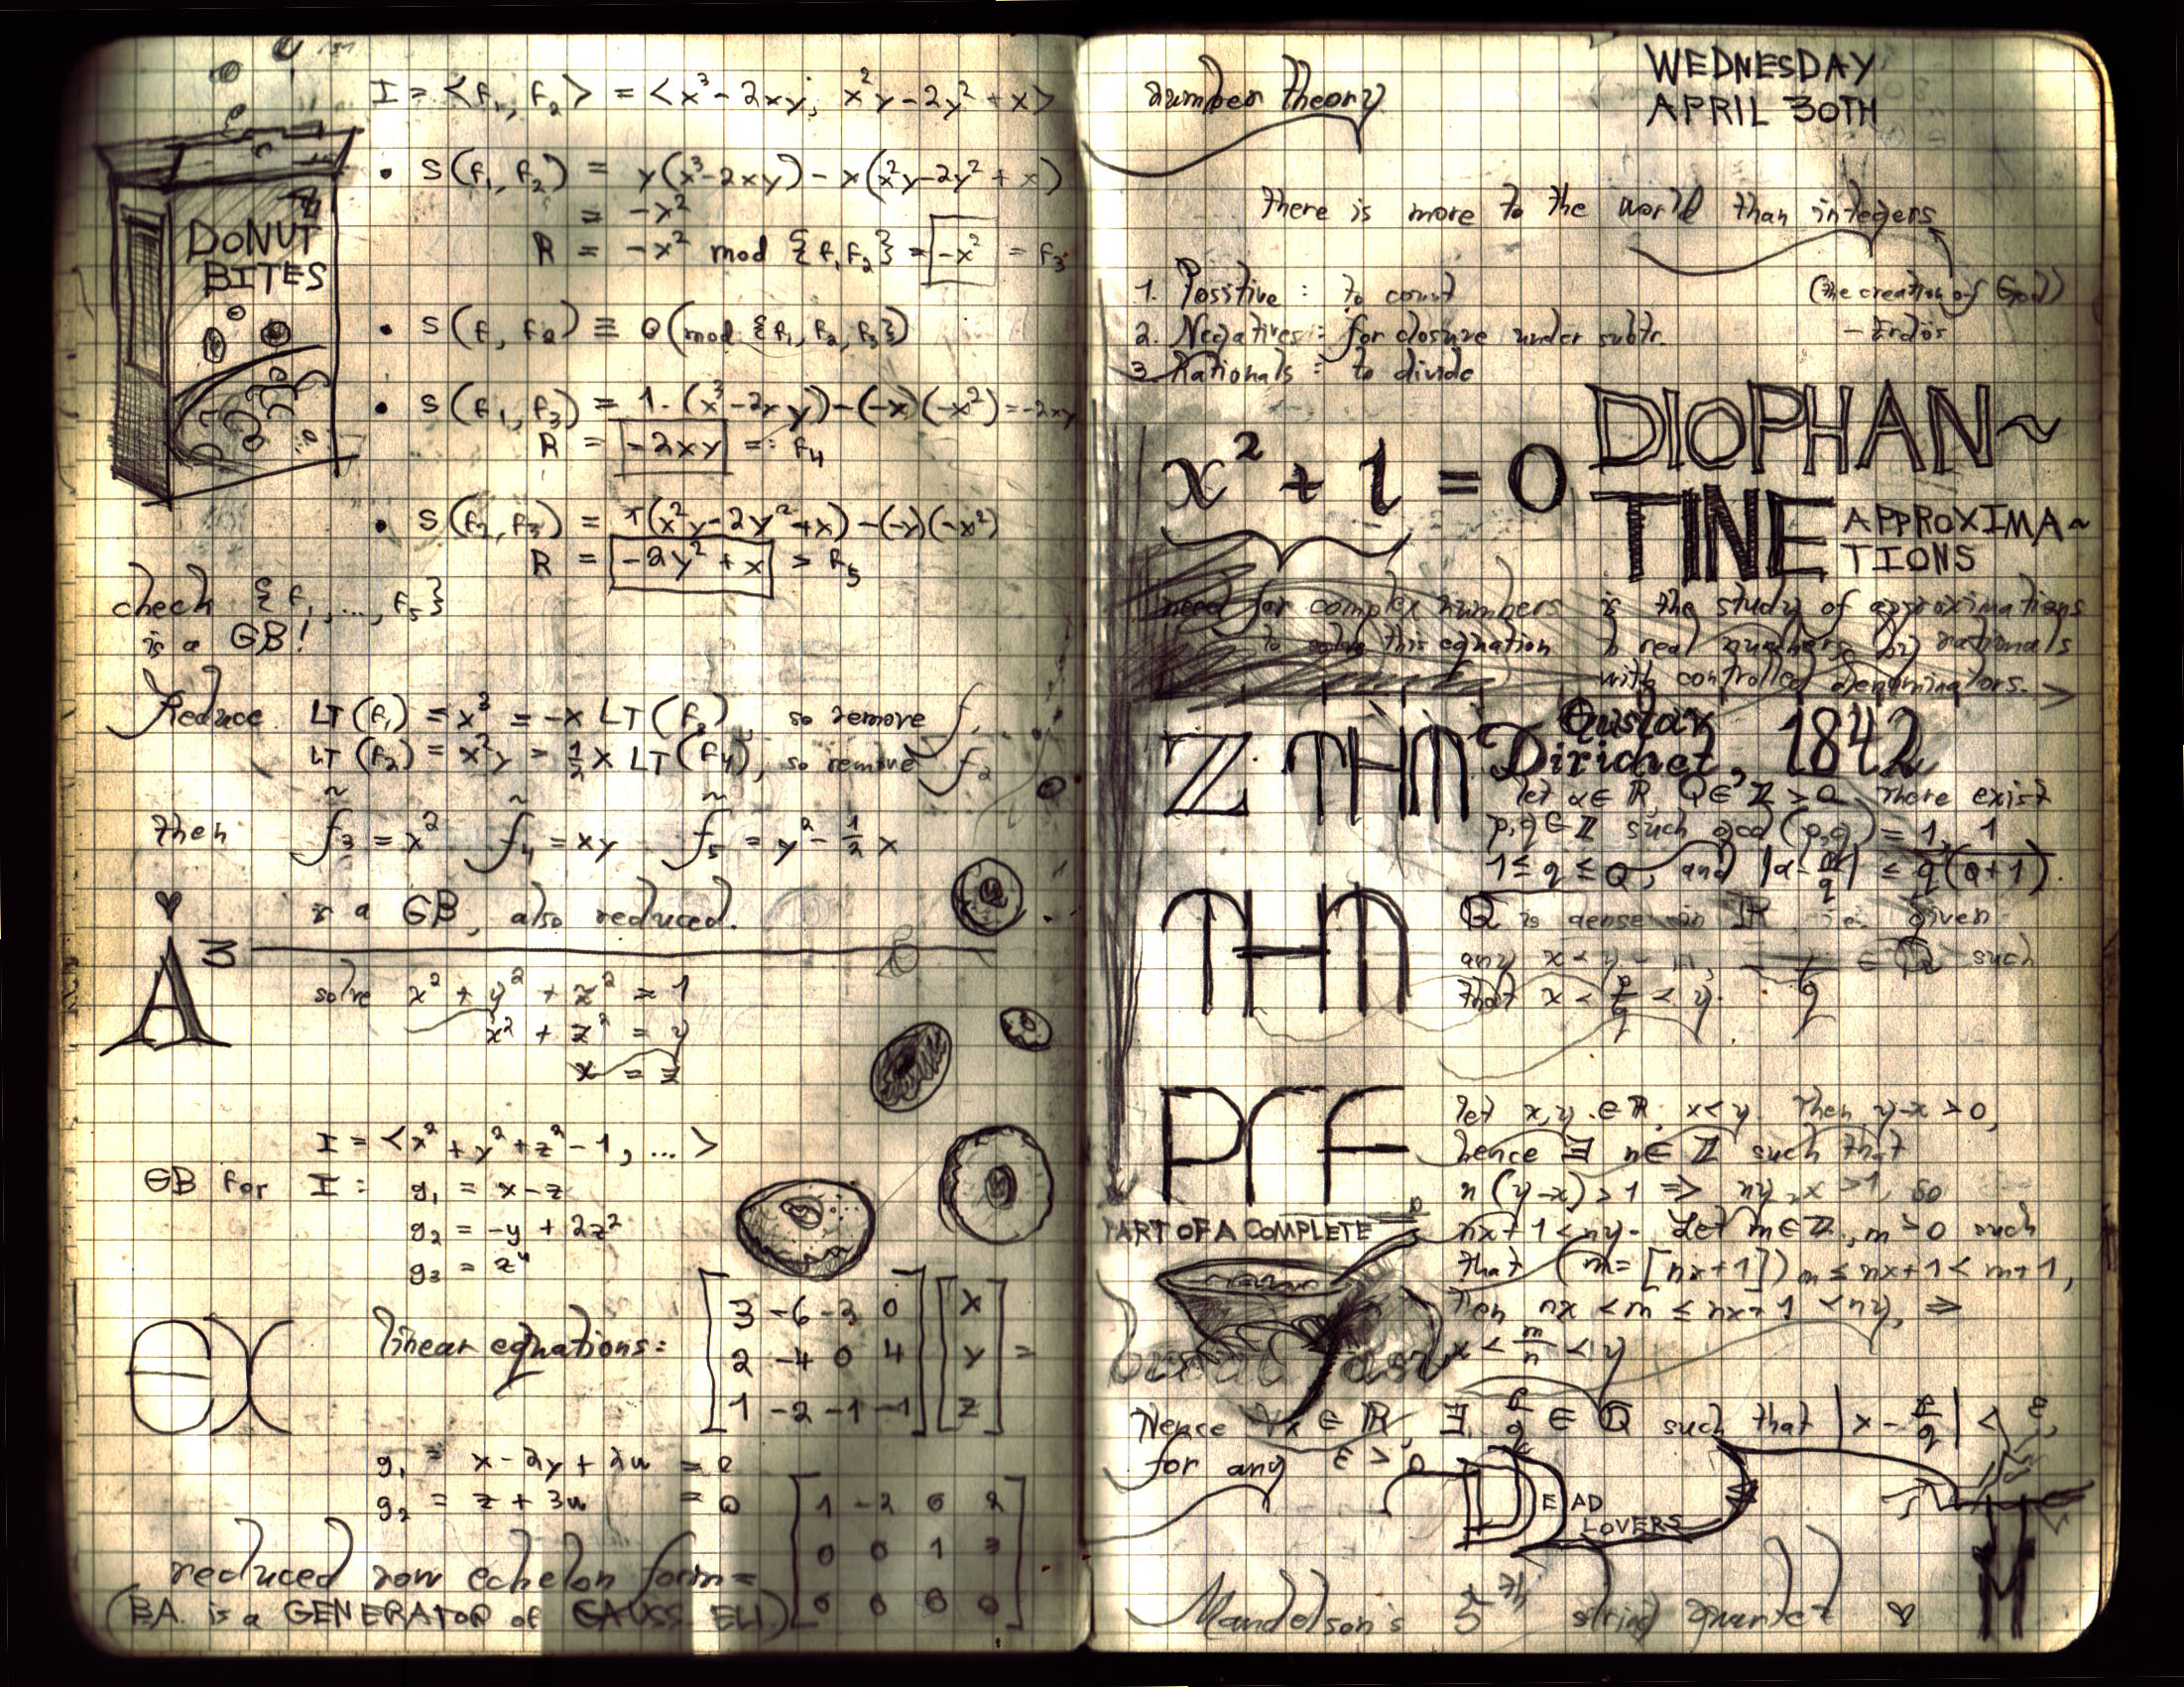 I = <f₁, f₂> = <x³ - 2xy; x²y - 2y² + x>
DONUT
BITES
• S(f₁, f₂) = y(x³-2xy) - x(x²y-2y² + x)
= -x²
R = -x² mod {f₁f₂} = -x² = f₃
• S(f₁, f₂) ≡ 0 (mod {f₁, f₂, f₃})
• S(f₁, f₃) = 1·(x³-2xy)-(-x)(-x²) = -2xy
R = -2xy =: f₄
• S(f₂, f₃) = 1(x²y-2y²+x)-(-y)(-x²)
R = -2y² + x > f₅
check {f₁, ..., f₅}
is a GB!
Reduce LT(f₁) = x³ = -x LT(f₃), so remove f₁
LT(f₂) = x²y = ½x LT(f₄), so remove f₂
then f̃₃ = x² f̃₄ = xy f̃₅ = y² - ½x
is a GB, also reduced.
A³
solve x² + y² + z² = 1
x² + z² = y
x = z
I = <x² + y² + z² - 1, ...>
GB for I: g₁ = x-z
g₂ = -y + 2z²
g₃ = z⁴
EX
linear equations:
3 -6 -3 0 x
2 -4 0 4 y =
1 -2 -1 -1 z
g₁ = x-2y+2w = 0
g₂ = z + 3w = 0
1 -2 0 2
0 0 1 3
0 0 0 0
reduced row echelon form =
(BA. is a GENERATOR of GAUSS. ELI)
number theory
WEDNESDAY
APRIL 30TH
there is more to the world than integers
(the creation of God)
- Erdös
1. Positive : to count
2. Negatives : for closure under subtr.
3. Rationals : to divide
x² + 1 = 0
DIOPHAN~
TINE APPROXIMA~
TIONS
need for complex numbers
to solve this equation
is the study of approximations
to real numbers by rationals
with controlled denominators.
Z THM Gustav
Dirichet, 1842
let α∈ℝ, Q∈ℤ > 0 There exist
p,q∈ℤ such gcd(p,q) = 1,
1 ≤ q ≤ Q, and |α-p/q| ≤ 1/q(Q+1).
THM
Q is dense in ℝ, i.e. given
any x < y ∈ Q such
that x < p/q < y.
PrF
let x,y ∈ ℝ, x<y. Then y-x > 0,
hence ∃ n∈ℤ such that
n(y-x)>1 => ny-nx >1, so
nx+1 < ny. Let m∈ℤ, m>0 such
that (m=[nx+1]) m ≤ nx+1 < m+1,
Then nx < m ≤ nx+1 < ny, =>
x < m/n < y
PART OF A COMPLETE
Hence ∀x ∈ ℝ, ∃ p/q ∈ Q such that |x - p/q| < ε,
for any ε > 0
DEAD
LOVERS
Mandelson's 5th string quartet ♡